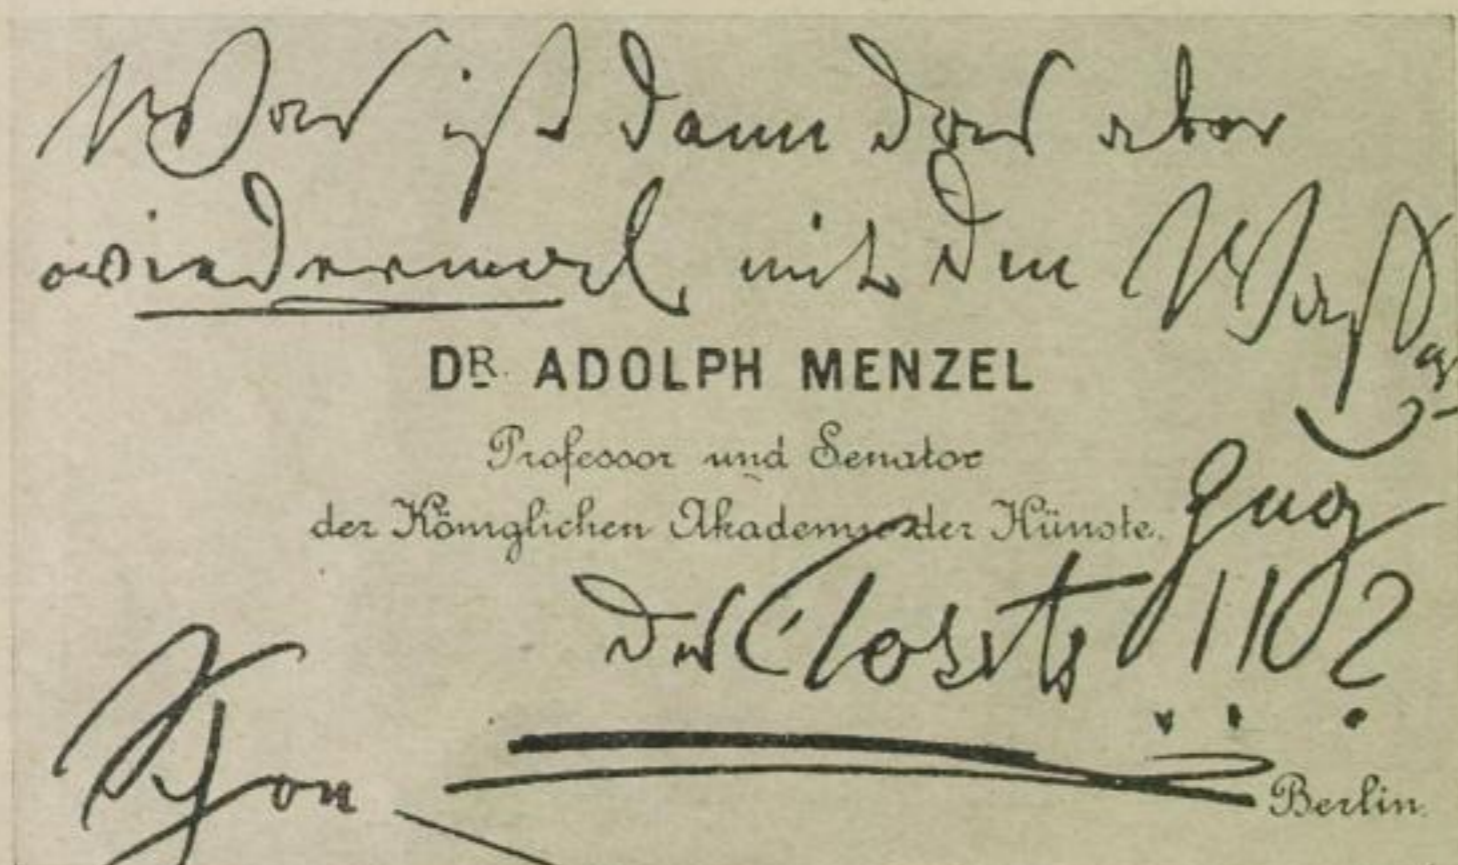 Was ist dann das aber
wiedermal mit dem Waßer-
DR. ADOLPH MENZEL
Professor und Senator
zug
der Königlichen Akademie der Künste.
des Closets !!!?
Schon
Berlin.